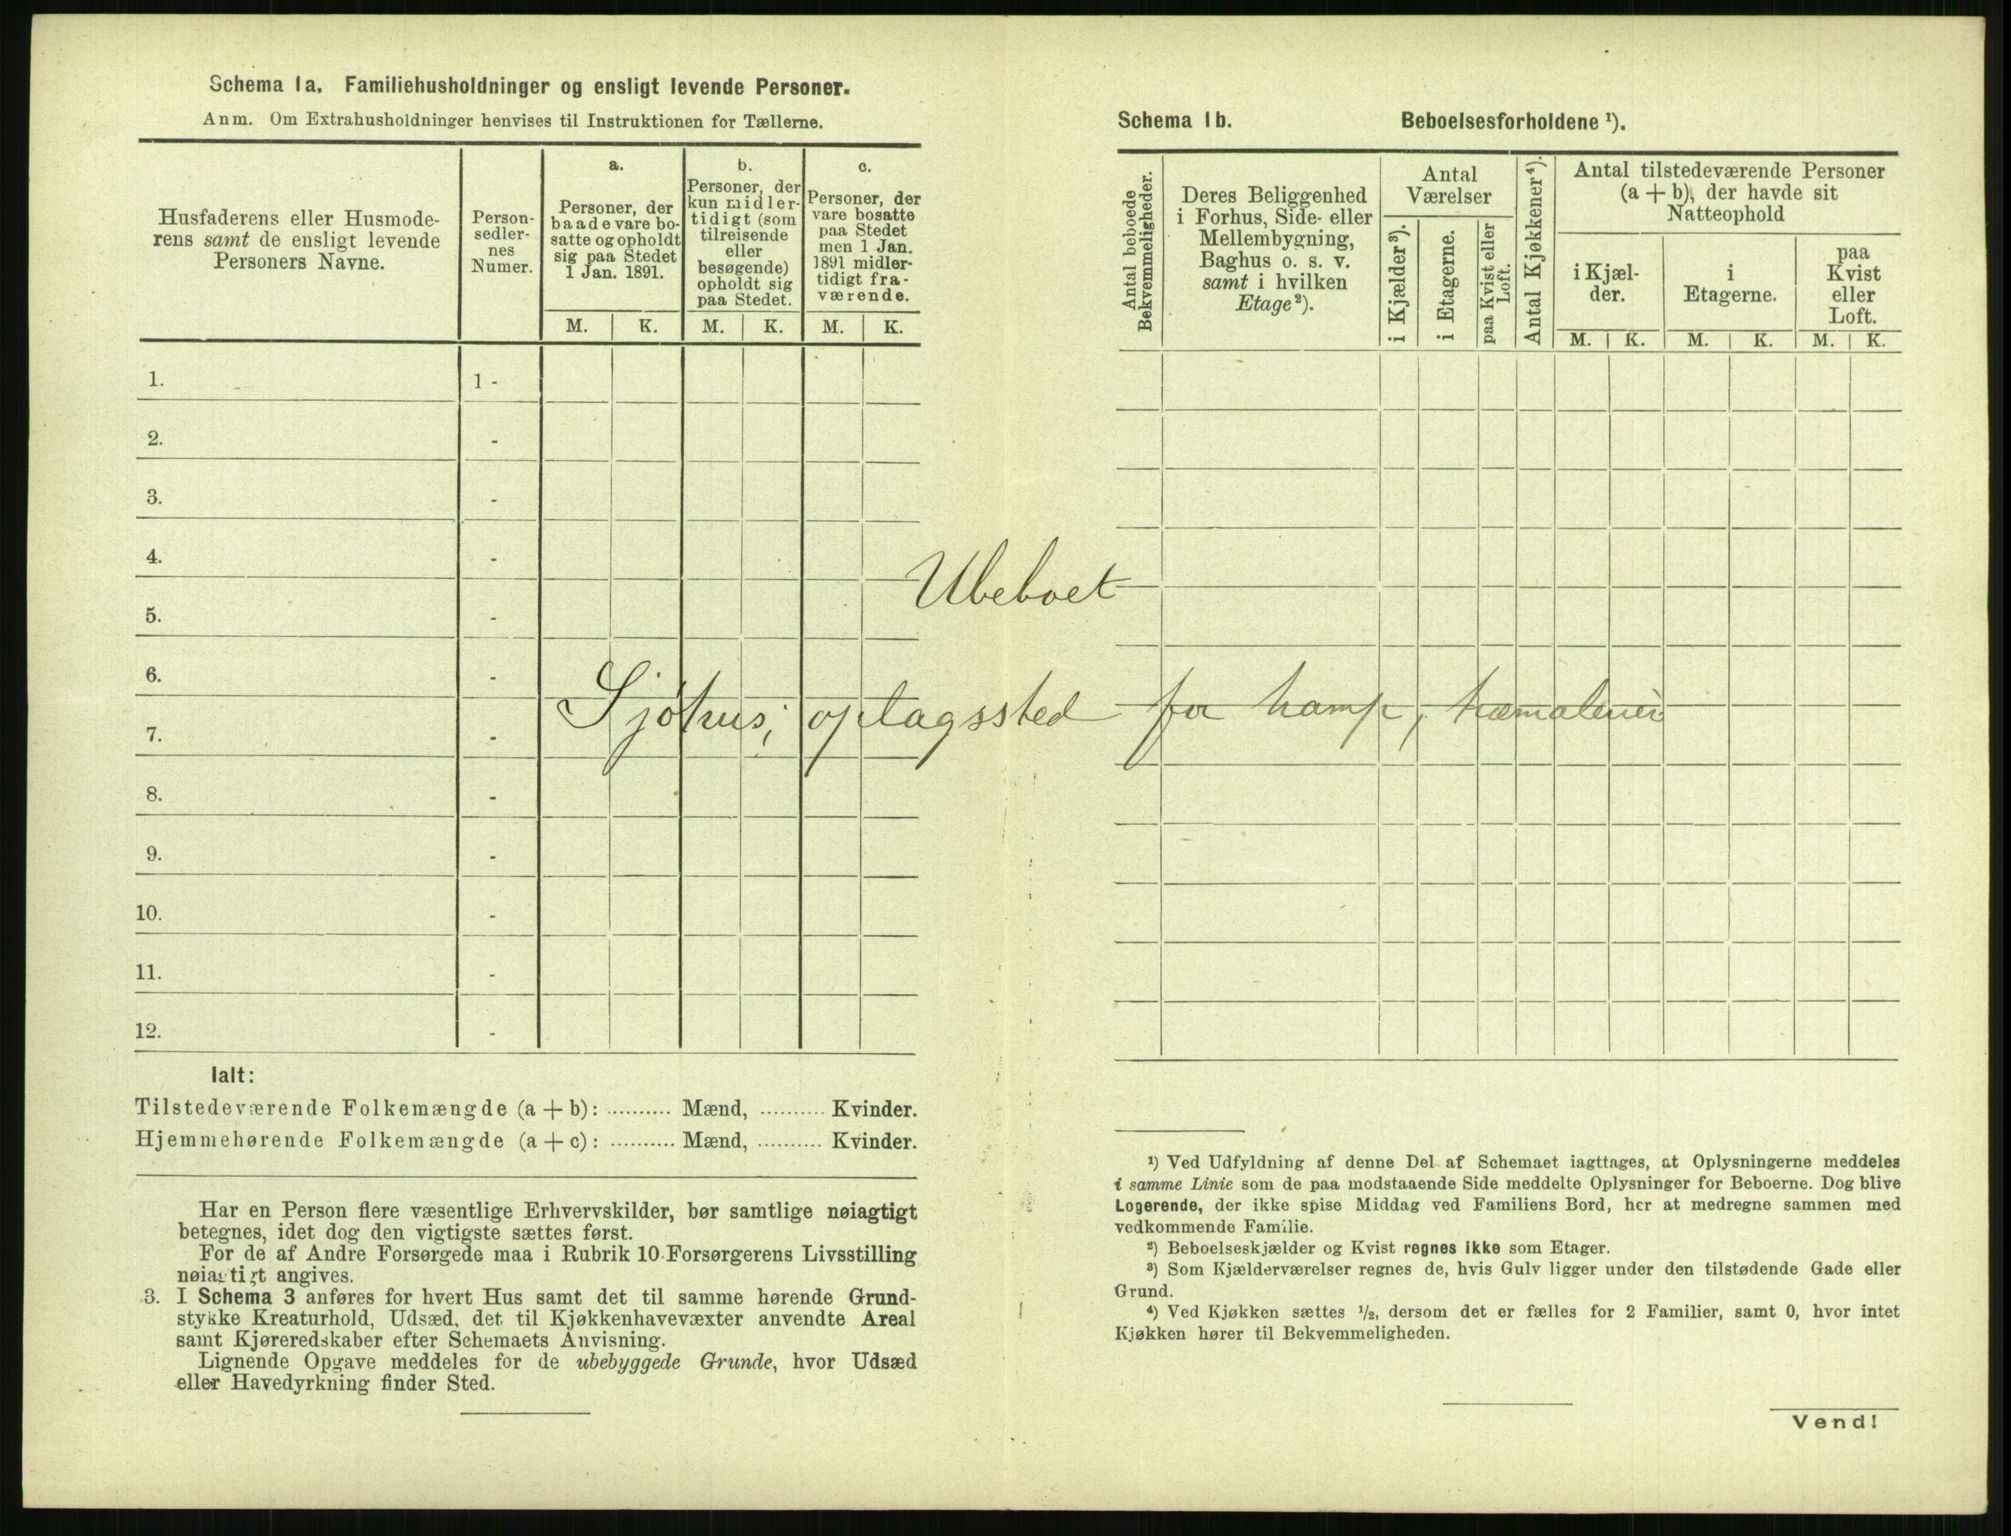 Schema 1a. Familiehusholdninger og ensligt levende Personer.
Anm. Om Extrahusholdninger henvises til Instruktionen for Tællerne.
Husfaderens eller Husmode-
rens samt de ensligt levende
Personers Navne.
Person-
sedler-
nes
Numer.
a.
Personer, der
baade vare bo-
satte og opholdt
sig paa Stedet
1 Jan. 1891.
b.
Personer, der
kun midler-
tidigt (som
tilreisende
eller
besøgende)
opholdt sig
paa Stedet.
c.
Personer, der
vare bosatte
paa Stedet
men 1 Jan.
1891 midler-
tidigt fra-
værende.
M. K. M. K. M. K.
1. 1 -
2. -
3. -
4. -
5. -
6. -
7. -
8. -
9. -
10. -
11. -
12. -
Ialt:
Tilstedeværende Folkemængde (a + b): .......... Mænd, .......... Kvinder.
Hjemmehørende Folkemængde (a + c): .......... Mænd, .......... Kvinder.
Har en Person flere væsentlige Erhvervskilder, bør samtlige nøiagtigt
betegnes, idet dog den vigtigste sættes først.
For de af Andre Forsørgede maa i Rubrik 10 Forsørgerens Livsstilling
nøiagtigt angives.
3. I Schema 3 anføres for hvert Hus samt det til samme hørende Grund-
stykke Kreaturhold, Udsæd, det til Kjøkkenhavevæxter anvendte Areal
samt Kjøreredskaber efter Schemaets Anvisning.
Lignende Opgave meddeles for de ubebyggede Grunde, hvor Udsæd
eller Havedyrkning finder Sted.
Ubeboet
Sjøhus; oplagssted for hamp,
Schema 1b. Beboelsesforholdene ¹).
Antal beboede
Bekvemmeligheder.
Deres Beliggenhed
i Forhus, Side- eller
Mellembygning,
Baghus o. s. v.
samt i hvilken
Etage ²).
Antal
Værelser
i Kjælder ³).
i Etagerne.
paa Kvist eller
Loft.
Antal Kjøkkener ⁴).
Antal tilstedeværende Personer
(a + b), der havde sit
Natteophold
i Kjæl-
der.
i
Etagerne.
paa
Kvist
eller
Loft.
M. K. M. K. M. K.
¹) Ved Udfyldning af denne Del af Schemaet iagttages, at Oplysningerne meddeles
i samme Linie som de paa modstaaende Side meddelte Oplysninger for Beboerne. Dog blive
Logerende, der ikke spise Middag ved Familiens Bord, her at medregne sammen med
vedkommende Familie.
²) Beboelseskjælder og Kvist regnes ikke som Etager.
³) Som Kjælderværelser regnes de, hvis Gulv ligger under den tilstødende Gade eller
Grund.
⁴) Ved Kjøkken sættes ¹/₂, dersom det er fælles for 2 Familier, samt 0, hvor intet
Kjøkken hører til Bekvemmeligheden.
Vend!